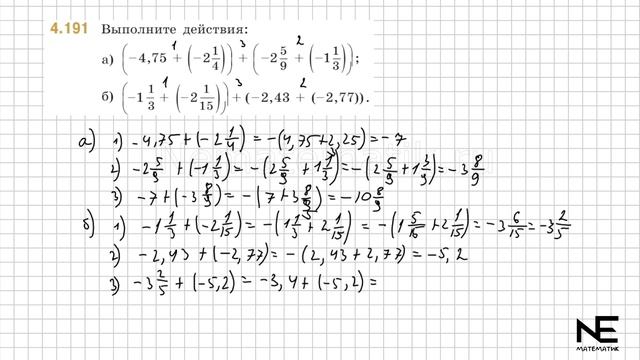 4.191 Выполните действия:
а) (−4,75 + (−2 1/4)) + (−2 5/9 + (−1 1/3));
б) (−1 1/3 + (−2 1/15)) + (−2,43 + (−2,77)).
1 3 2
1 3 2
а) 1) −4,75 + (−2 1/4) = −(4,75 + 2,25) = −7
2) −2 5/9 + (−1 1/3) = −(2 5/9 + 1 1/3) = −(2 5/9 + 1 3/9) = −3 8/9
3) −7 + (−3 8/9) = −(7 + 3 8/9) = −10 8/9
б) 1) −1 1/3 + (−2 1/15) = −(1 1/3 + 2 1/15) = −(1 5/15 + 2 1/15) = −3 6/15 = −3 2/5
2) −2,43 + (−2,77) = −(2,43 + 2,77) = −5,2
3) −3 2/5 + (−5,2) = −3,4 + (−5,2) =
NE
МАТЕМАТИК